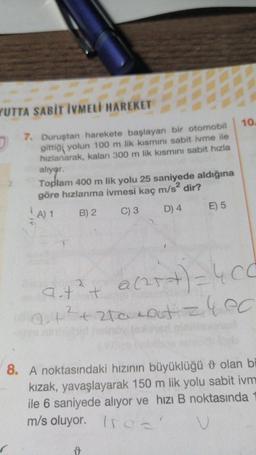 YUTTA SABİT İVMELİ HAREKET
7. Duruştan harekete başlayan bir otomobil
gittiği yolun 100 m lik kısmını sabit ivme ile
hızlanarak, kalan 300 m lik kısmını sabit hızla
alıyor.
Toplam 400 m lik yolu 25 saniyede aldığına
göre hızlanma ivmesi kaç m/s² dir?
A) 1 B) 2 C) 3 D) 4 E) 5
10.
8. A noktasındaki hızının büyüklüğü ϑ olan bi
kızak, yavaşlayarak 150 m lik yolu sabit ivm
ile 6 saniyede alıyor ve hızı B noktasında
m/s oluyor.
ϑ